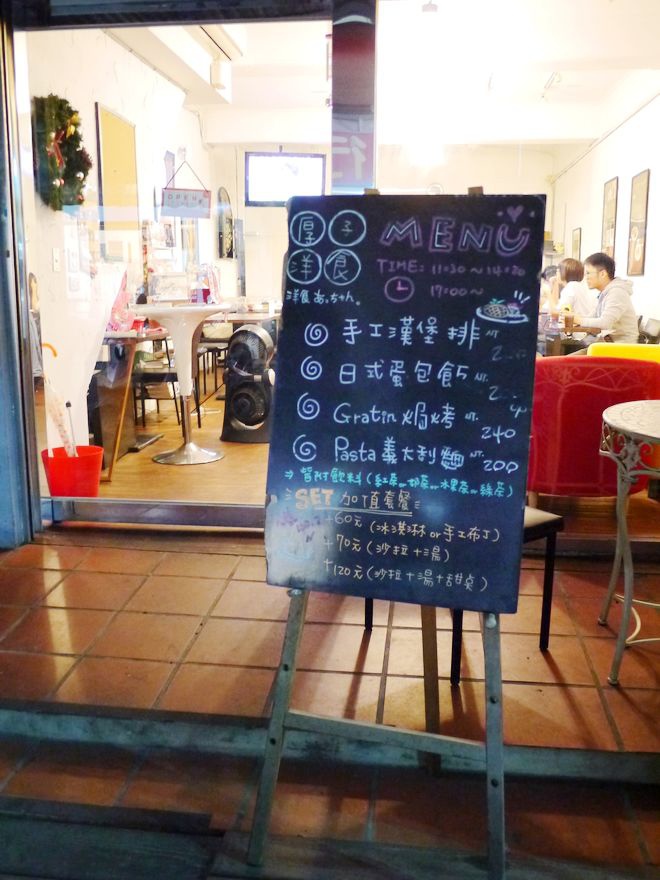 厚子
洋食
洋食あっちゃん。
MENU
TIME: 11:30～14:20
17:00～
手工漢堡排 NT.
日式蛋包飯 NT.
Gratin 焗烤 NT. 240
Pasta 義大利麵 NT. 200
⇒皆附飲料(紅茶or奶茶or水果茶or綠茶)
SET 加值套餐
+60元(冰淇淋or手工布丁)
+70元(沙拉+湯)
+120元(沙拉+湯+甜點)
OPEN
行